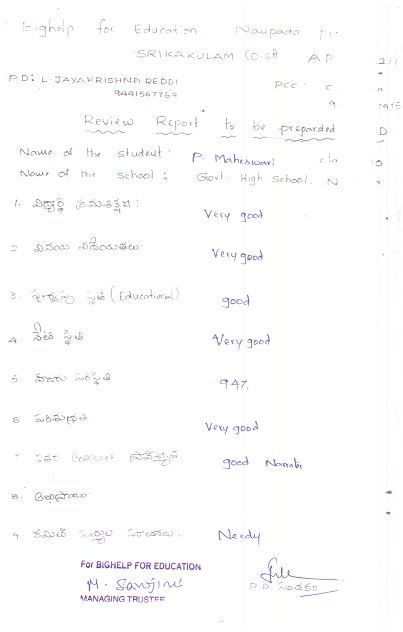 Bighelp for Education Naupada
SRIKAKULAM (Dist) A P
P.D: L. JAYAKRISHNA REDDI PCC
9491567769
Review Report to be preparded
Name of the student: P. Maheswari cla 10
Name of the school: Govt. High School. N
1. విద్యార్థి క్రమశిక్షణ :
Very good
2 వినయ విధేయతలు
Very good
3. పూర్వపు స్థితి (Educational)
good
4. నేటి స్థితి
Very good
5 హాజరు పరిస్థితి
94%
6 పరిశుభ్రత
Very good
7 ఇతర
good
8. అభిప్రాయం
9 కమిటి సభ్యుల
Needy
For BIGHELP FOR EDUCATION
M. Sanjiru
MANAGING TRUSTEE
P.D. సంతకం